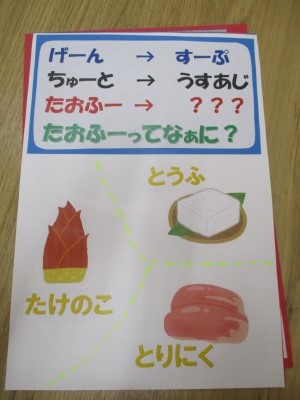 げーん → すーぷ
ちゅーと → うすあじ
たおふー → ？？？
たおふーってなぁに？
とうふ
たけのこ
とりにく